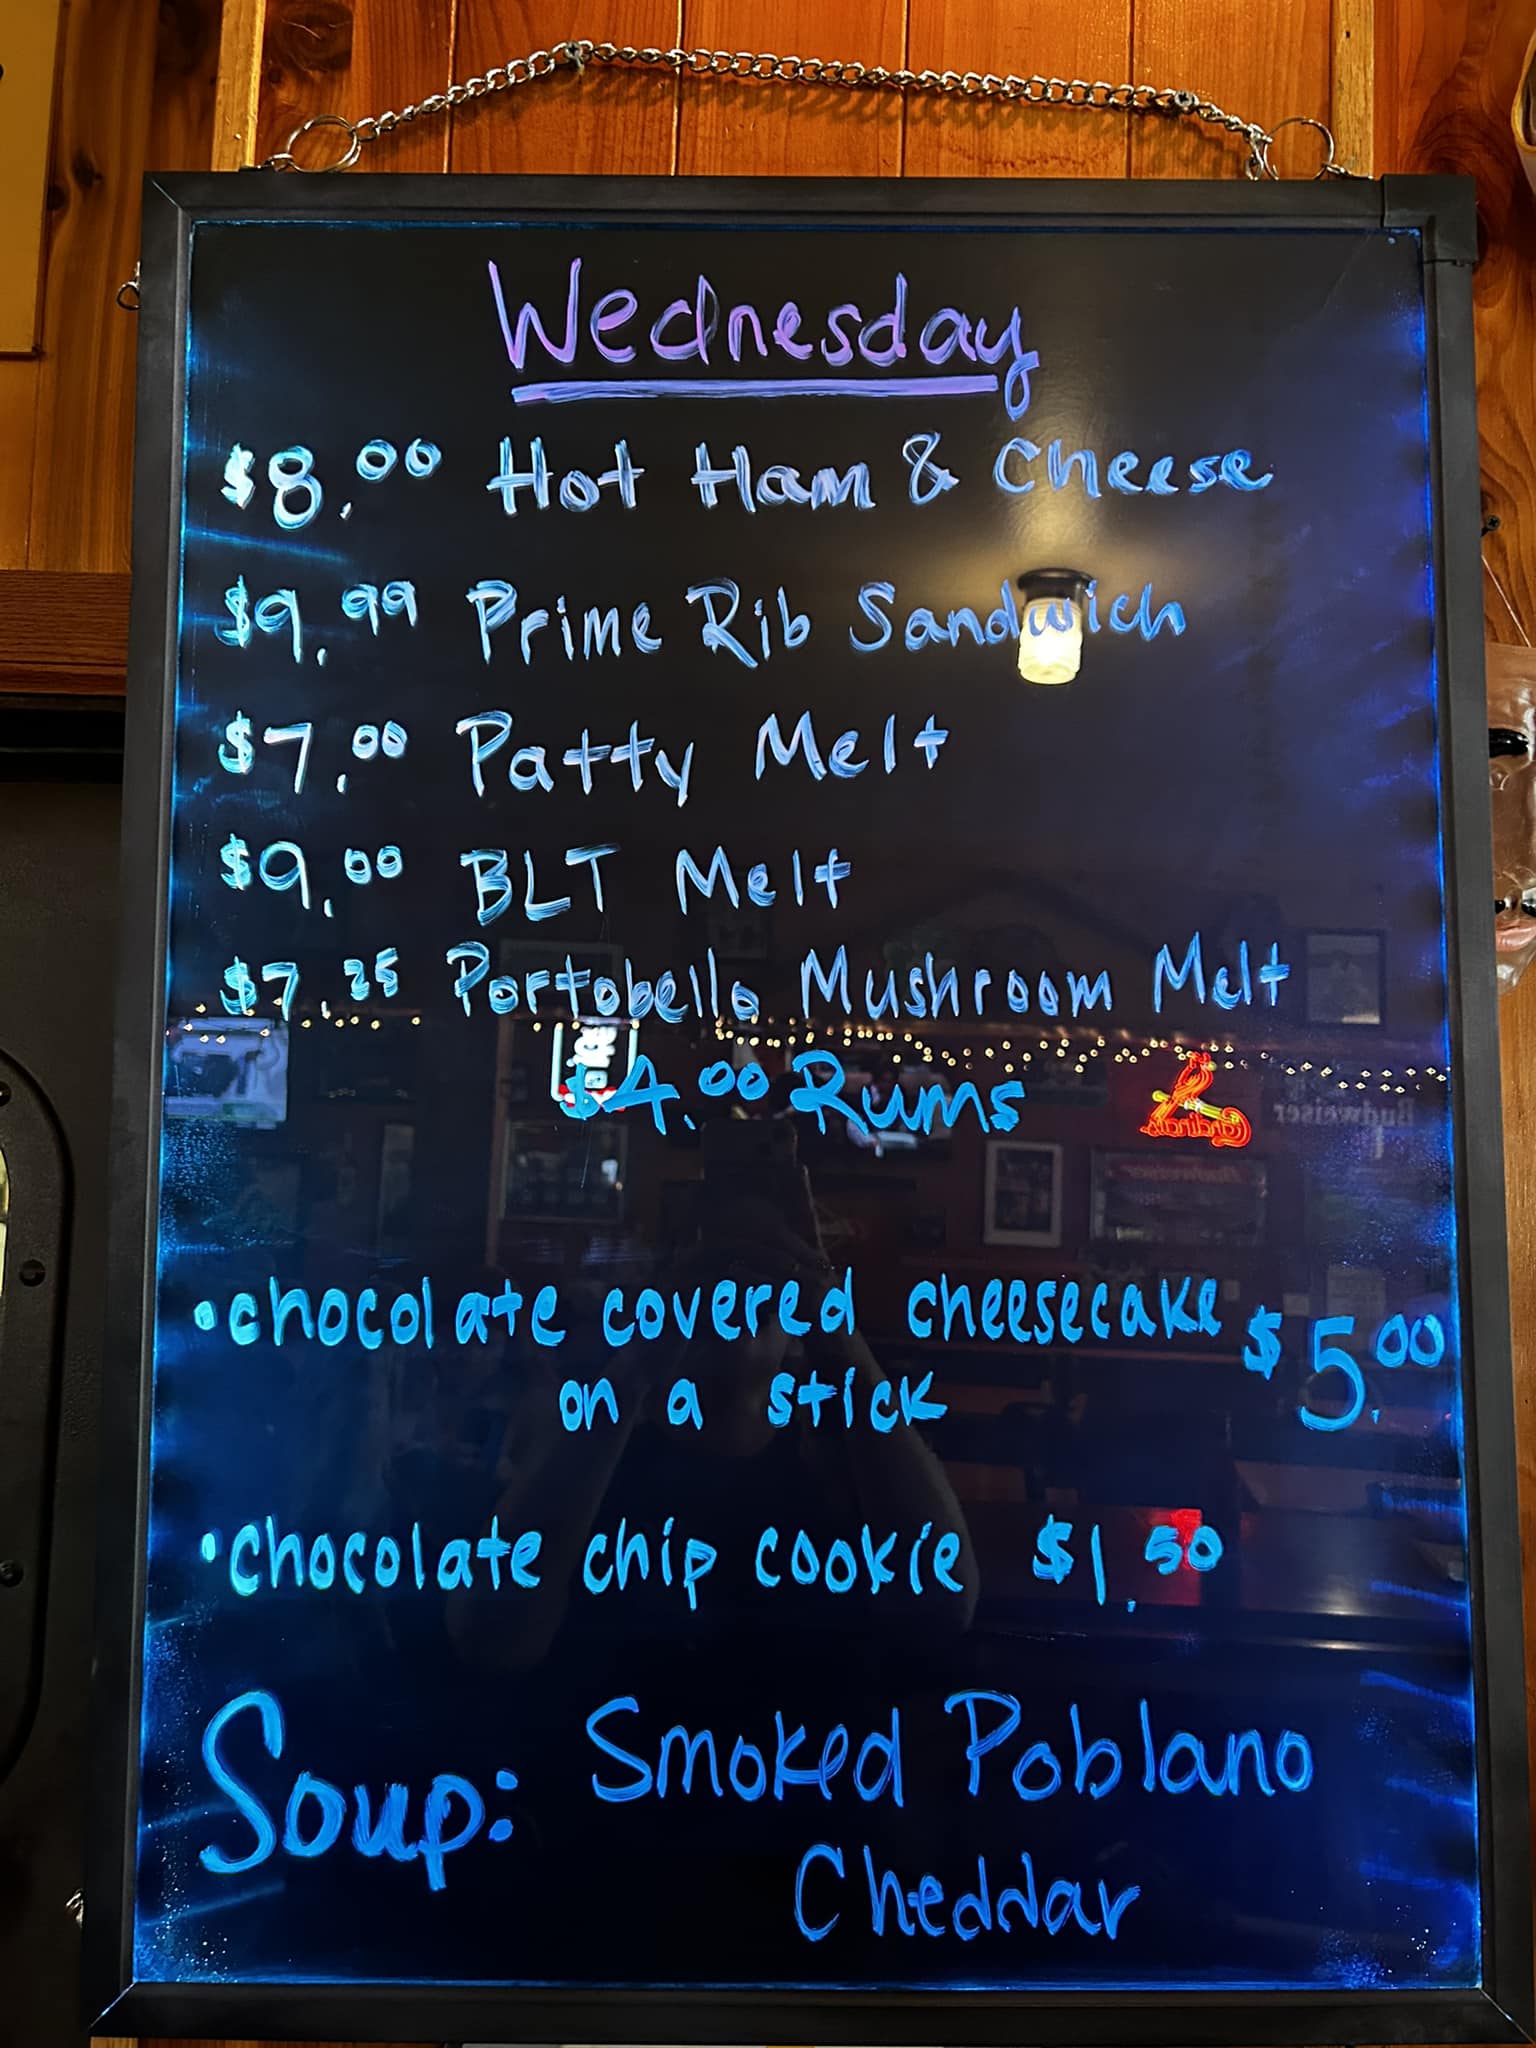 Wednesday
$8.00 Hot Ham & Cheese
$9.99 Prime Rib Sandwich
$7.00 Patty Melt
$9.00 BLT Melt
$7.25 Portobello Mushroom Melt
$4.00 Rums
Cardinals
Budweiser
Budweiser
•chocolate covered cheesecake $5.00
on a stick
•chocolate chip cookie $1.50
Soup: Smoked Poblano
Cheddar